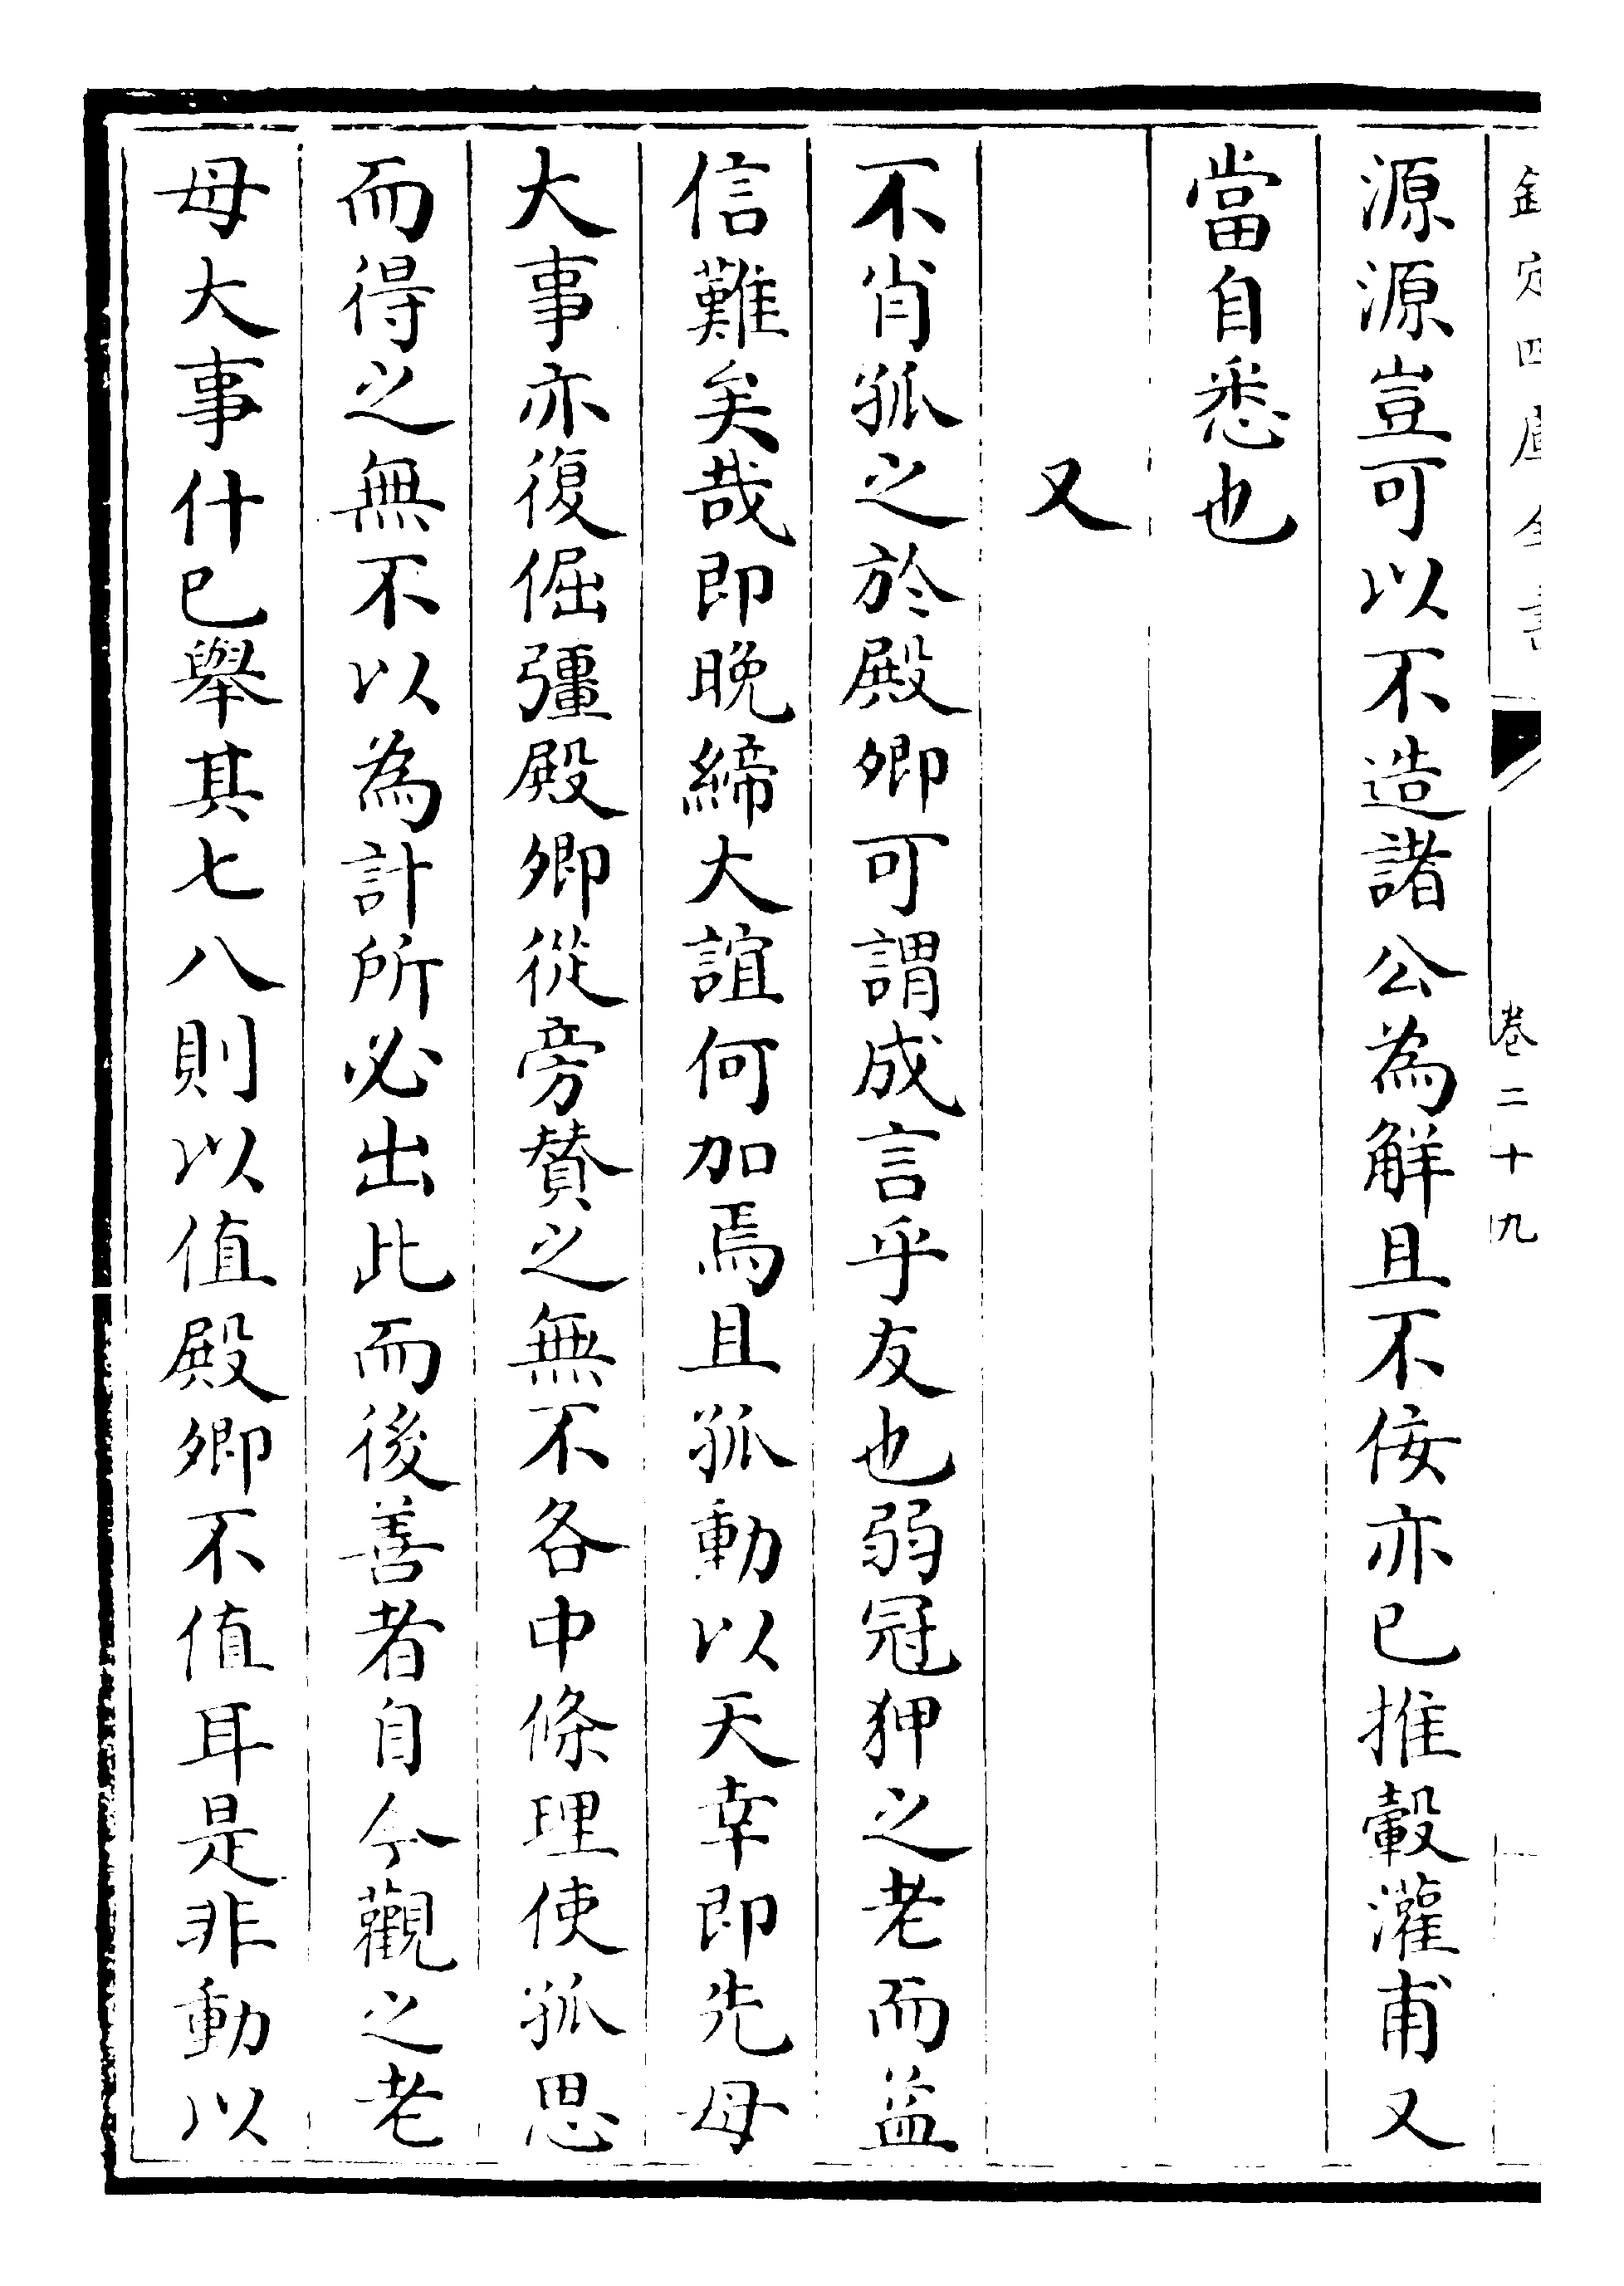 欽定四庫全書
卷二十九
源源豈可以不造諸公為解且不佞亦已推轂灌甫又
當自悉也
又
不肖孤之於殿卿可謂成言乎友也弱冠狎之老而益
信難矣哉即晚締大誼何加焉且孤動以天幸即先母
大事亦復倔彊殿卿從旁贊之無不各中條理使孤思
而得之無不以為計所必出此而後善者自今觀之老
母大事什已舉其七八則以值殿卿不值耳是非動以